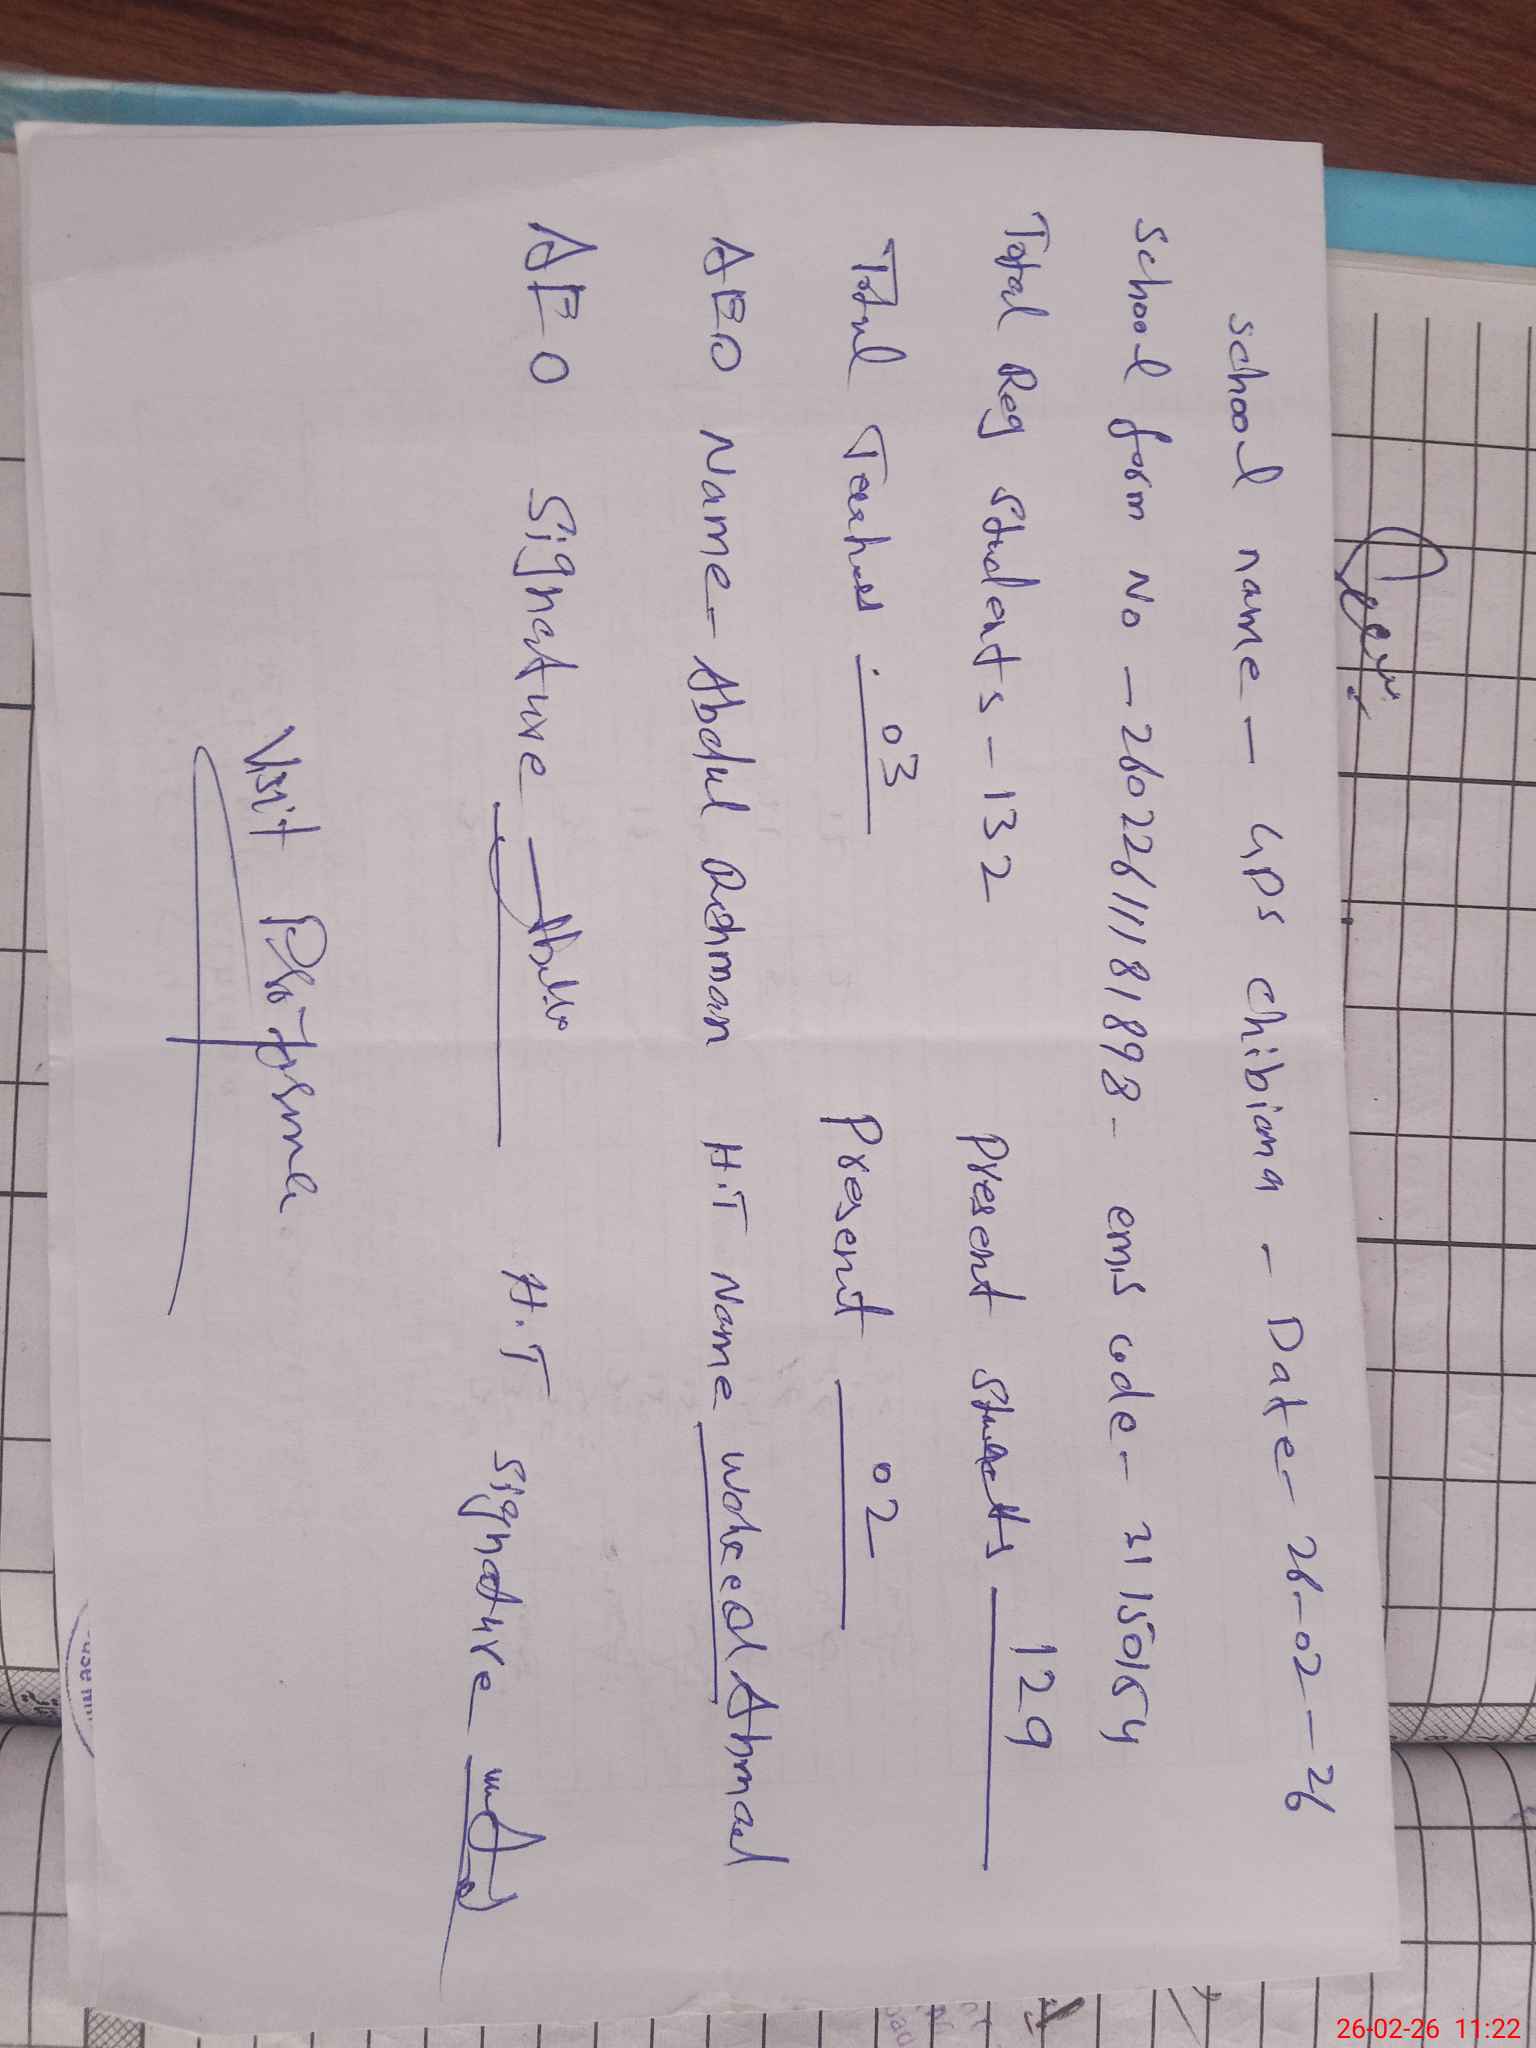 School name - GPS chibiana - Date - 26-02-26
School form No - 260226111181898 - ems code - 31150164
Total Reg Students - 132 Present Students 129
Total Teachers . 03 Present 02
AEO Name - Abdul Rehman H.T Name Waheed Ahmad
AEO Signature H.T Signature
Visit Proforma
26-02-26 11:22